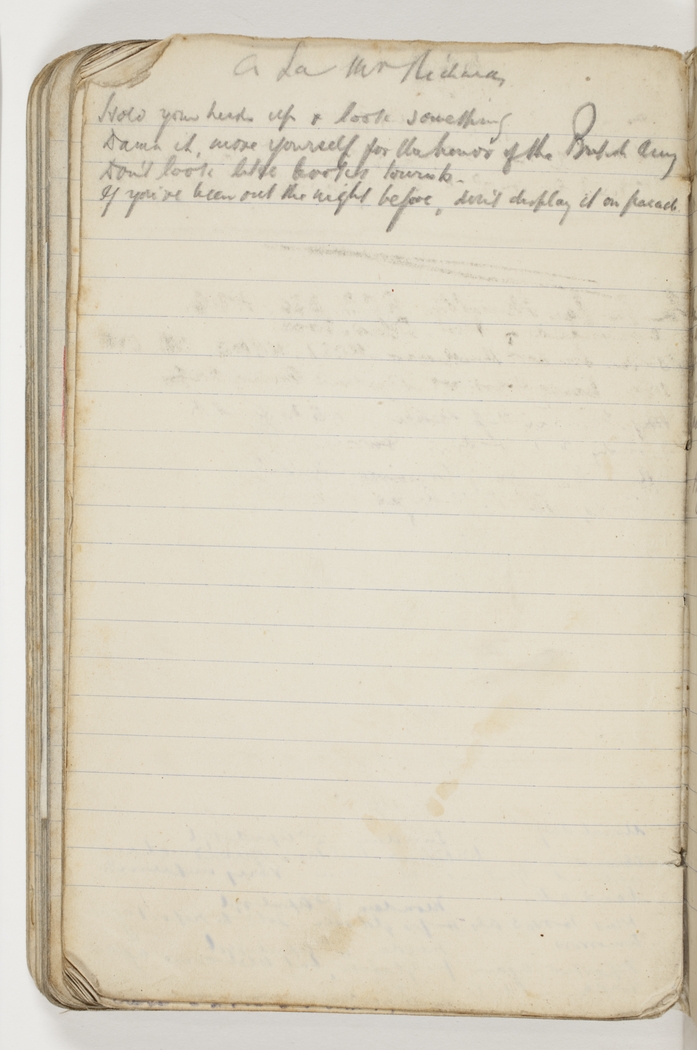 A La Mr Richards
Hold your heads up & look something
Damn it, move yourself for the honor of the British Army
Don't look like Cook's tourists.
If you've been out the night before, don't display it on parade